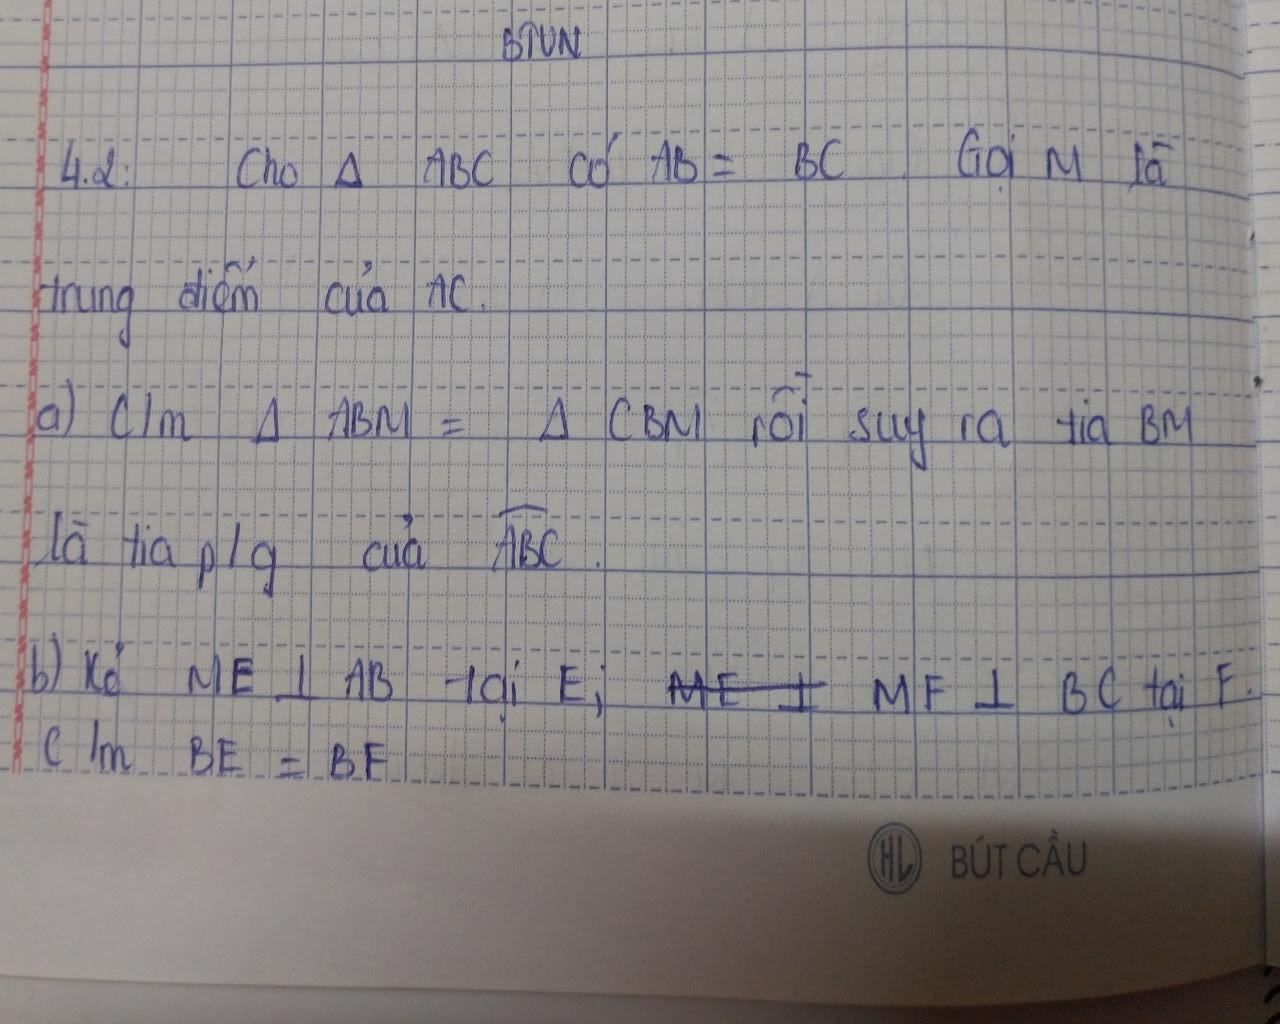 BTVN
4.2: Cho Δ ABC có AB = BC Gọi M là
trung điểm của AC.
a) C/m Δ ABM = Δ CBM rồi suy ra tia BM
là tia p/g của ABC.
b) Kẻ ME ⊥ AB tại E; ME ⊥ MF ⊥ BC tại F.
C/m BE = BF
HL BÚT CẦU